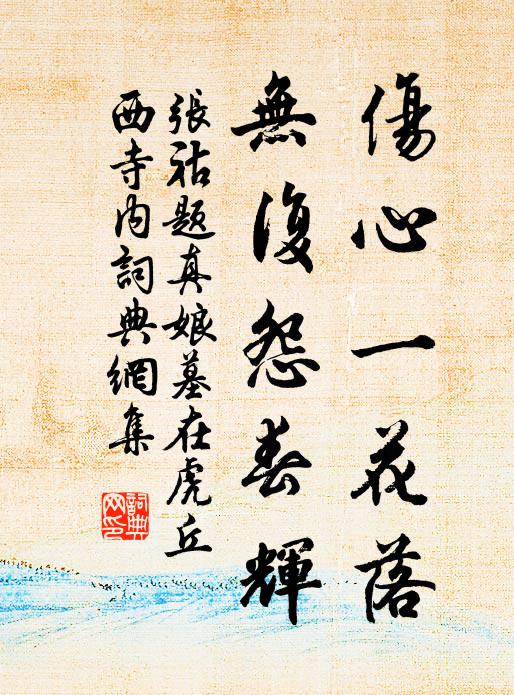 傷心一花落
無復怨春輝
張祜題真娘墓在虎丘
西寺內詞典網集
詞典
网印